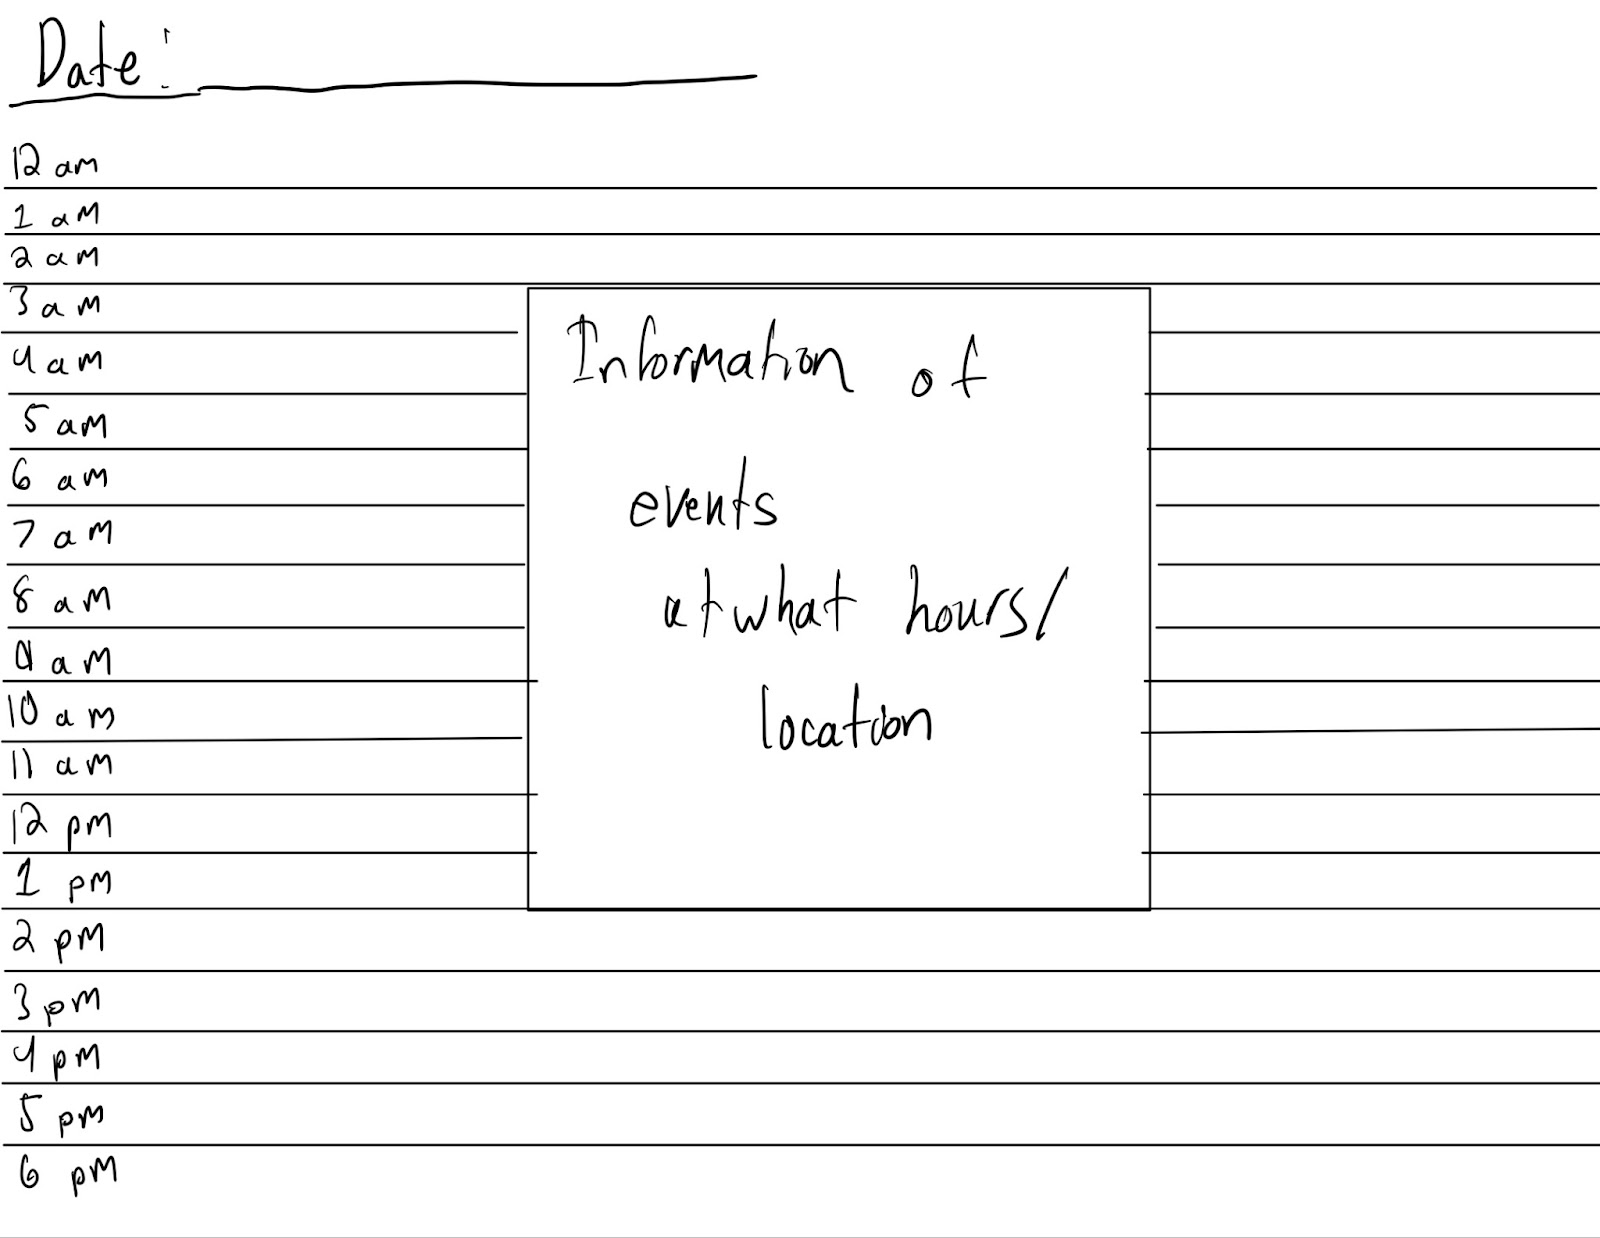 Date:
12 am
1 am
2 am
3 am
4 am
5 am
6 am
7 am
8 am
9 am
10 am
11 am
12 pm
1 pm
2 pm
3 pm
4 pm
5 pm
6 pm
Information of
events
at what hours/
location